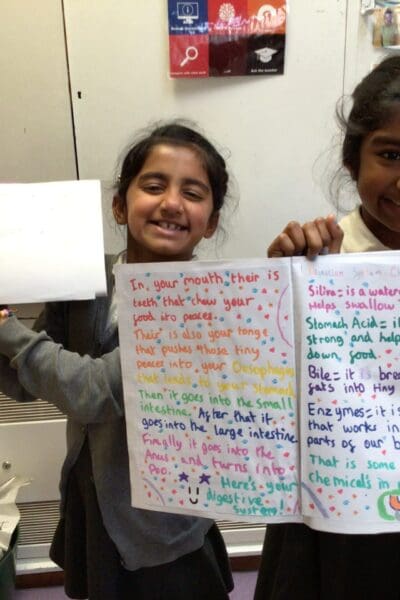 In, your mouth, their is
teeth that chew your
food into peaces.
Their is also your tonge
that pushes those tiny
peaces into your Oesophagus
that leads to your stomach.
Then it goes into the small
intestine. After that it
goes into the large intestine.
Finally it goes into the
Anus. and turns into
Poo.
Here's your
digestive
System!
Siliva= is a water
Helps swallow
Stomach Acid= it
strong and help
down, good.
Bile= it is brea
fats into tiny
Enzymes= it is
that works in
parts of our b
That is some
chemicals in
Ask the teacher